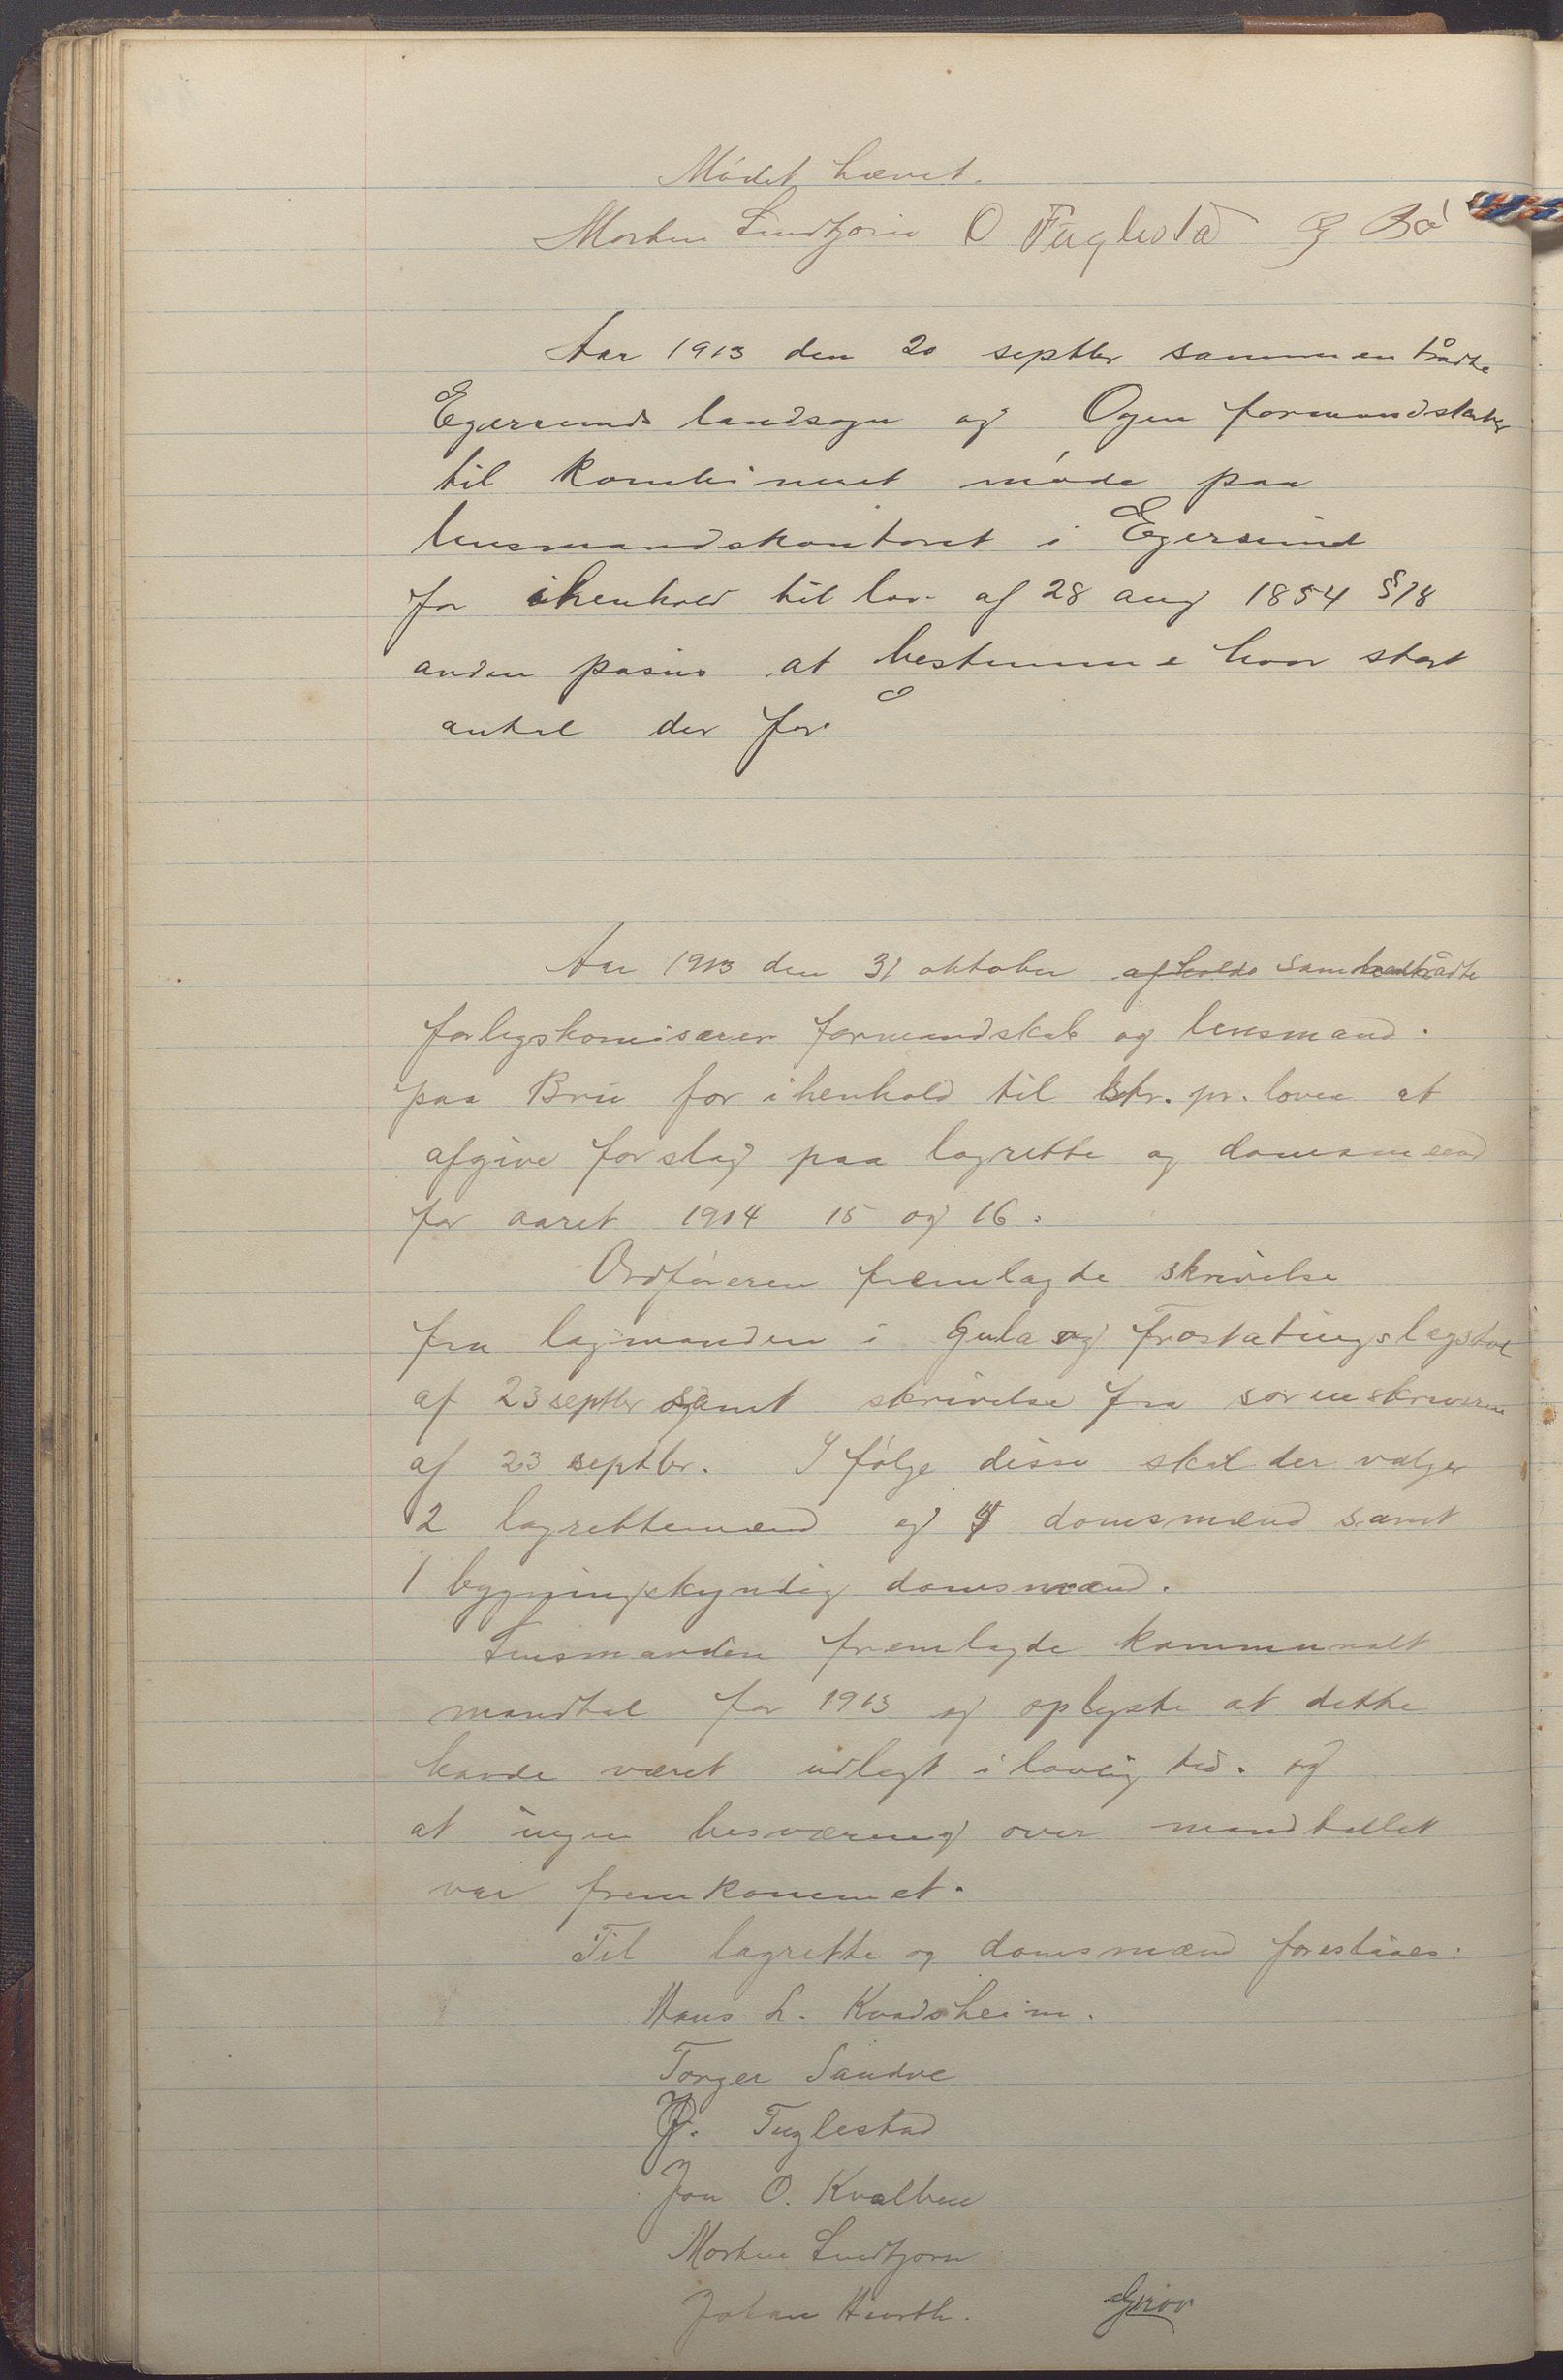 Mødet hævet.
Morten Lindtjørn O Fuglestad G Bø
Aar 1913 den 20 septbr sammentrådte
Egersunds landsogn og Ogne formandskaber
til kombineret møde paa
lensmandskontoret i Egersund
for ihenhold til lov af 28 aug 1854 §18
anden pasus at bestemme hvor stort
antal der for
Aar 1913 den 31 oktober afholdo sammentrådte
forligskomisærer formandskab og lensmand.
paa Bru for ihenhold til str. pr. loven at
afgive forslag paa lagrette og domsmænd
for aaret 1914 15 og 16.
Ordføreren fremlagde skrivelse
fra lagmanden i Gula og Frostatings lagstol
af 23 septbr samt skrivelse fra sorenskriveren
af 23 septbr. I følge disse skal der vælges
2 lagrettemænd og domsmænd samt
1 bygningskyndig domsmænd.
Lensmanden fremlagde kommunalt
mandtal for 1913 og oplyste at dette
havde været udlagt i lovlig tid. og
at ingen besværing over mandtallet
var fremkommet.
Til lagrette og domsmænd foreslåaes:
Hans L. Kvadsheim.
Torger Sandve
Fuglestad
Jon O. Kvalben
Morten Lindtjorn
Johan Hunth.